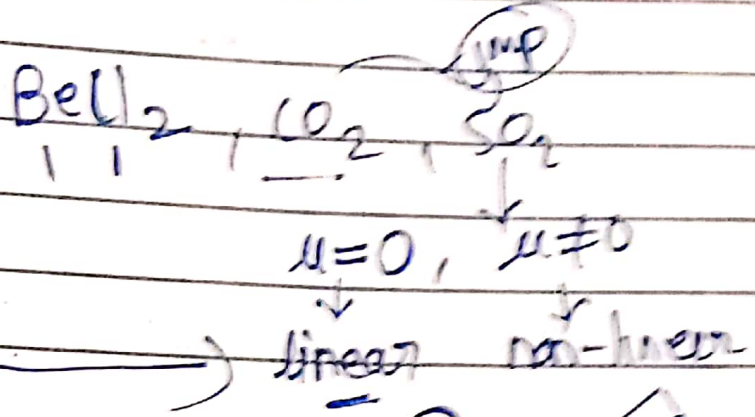 imp
BeCl2, CO2, SO2
μ=0, μ≠0
linear non-linear